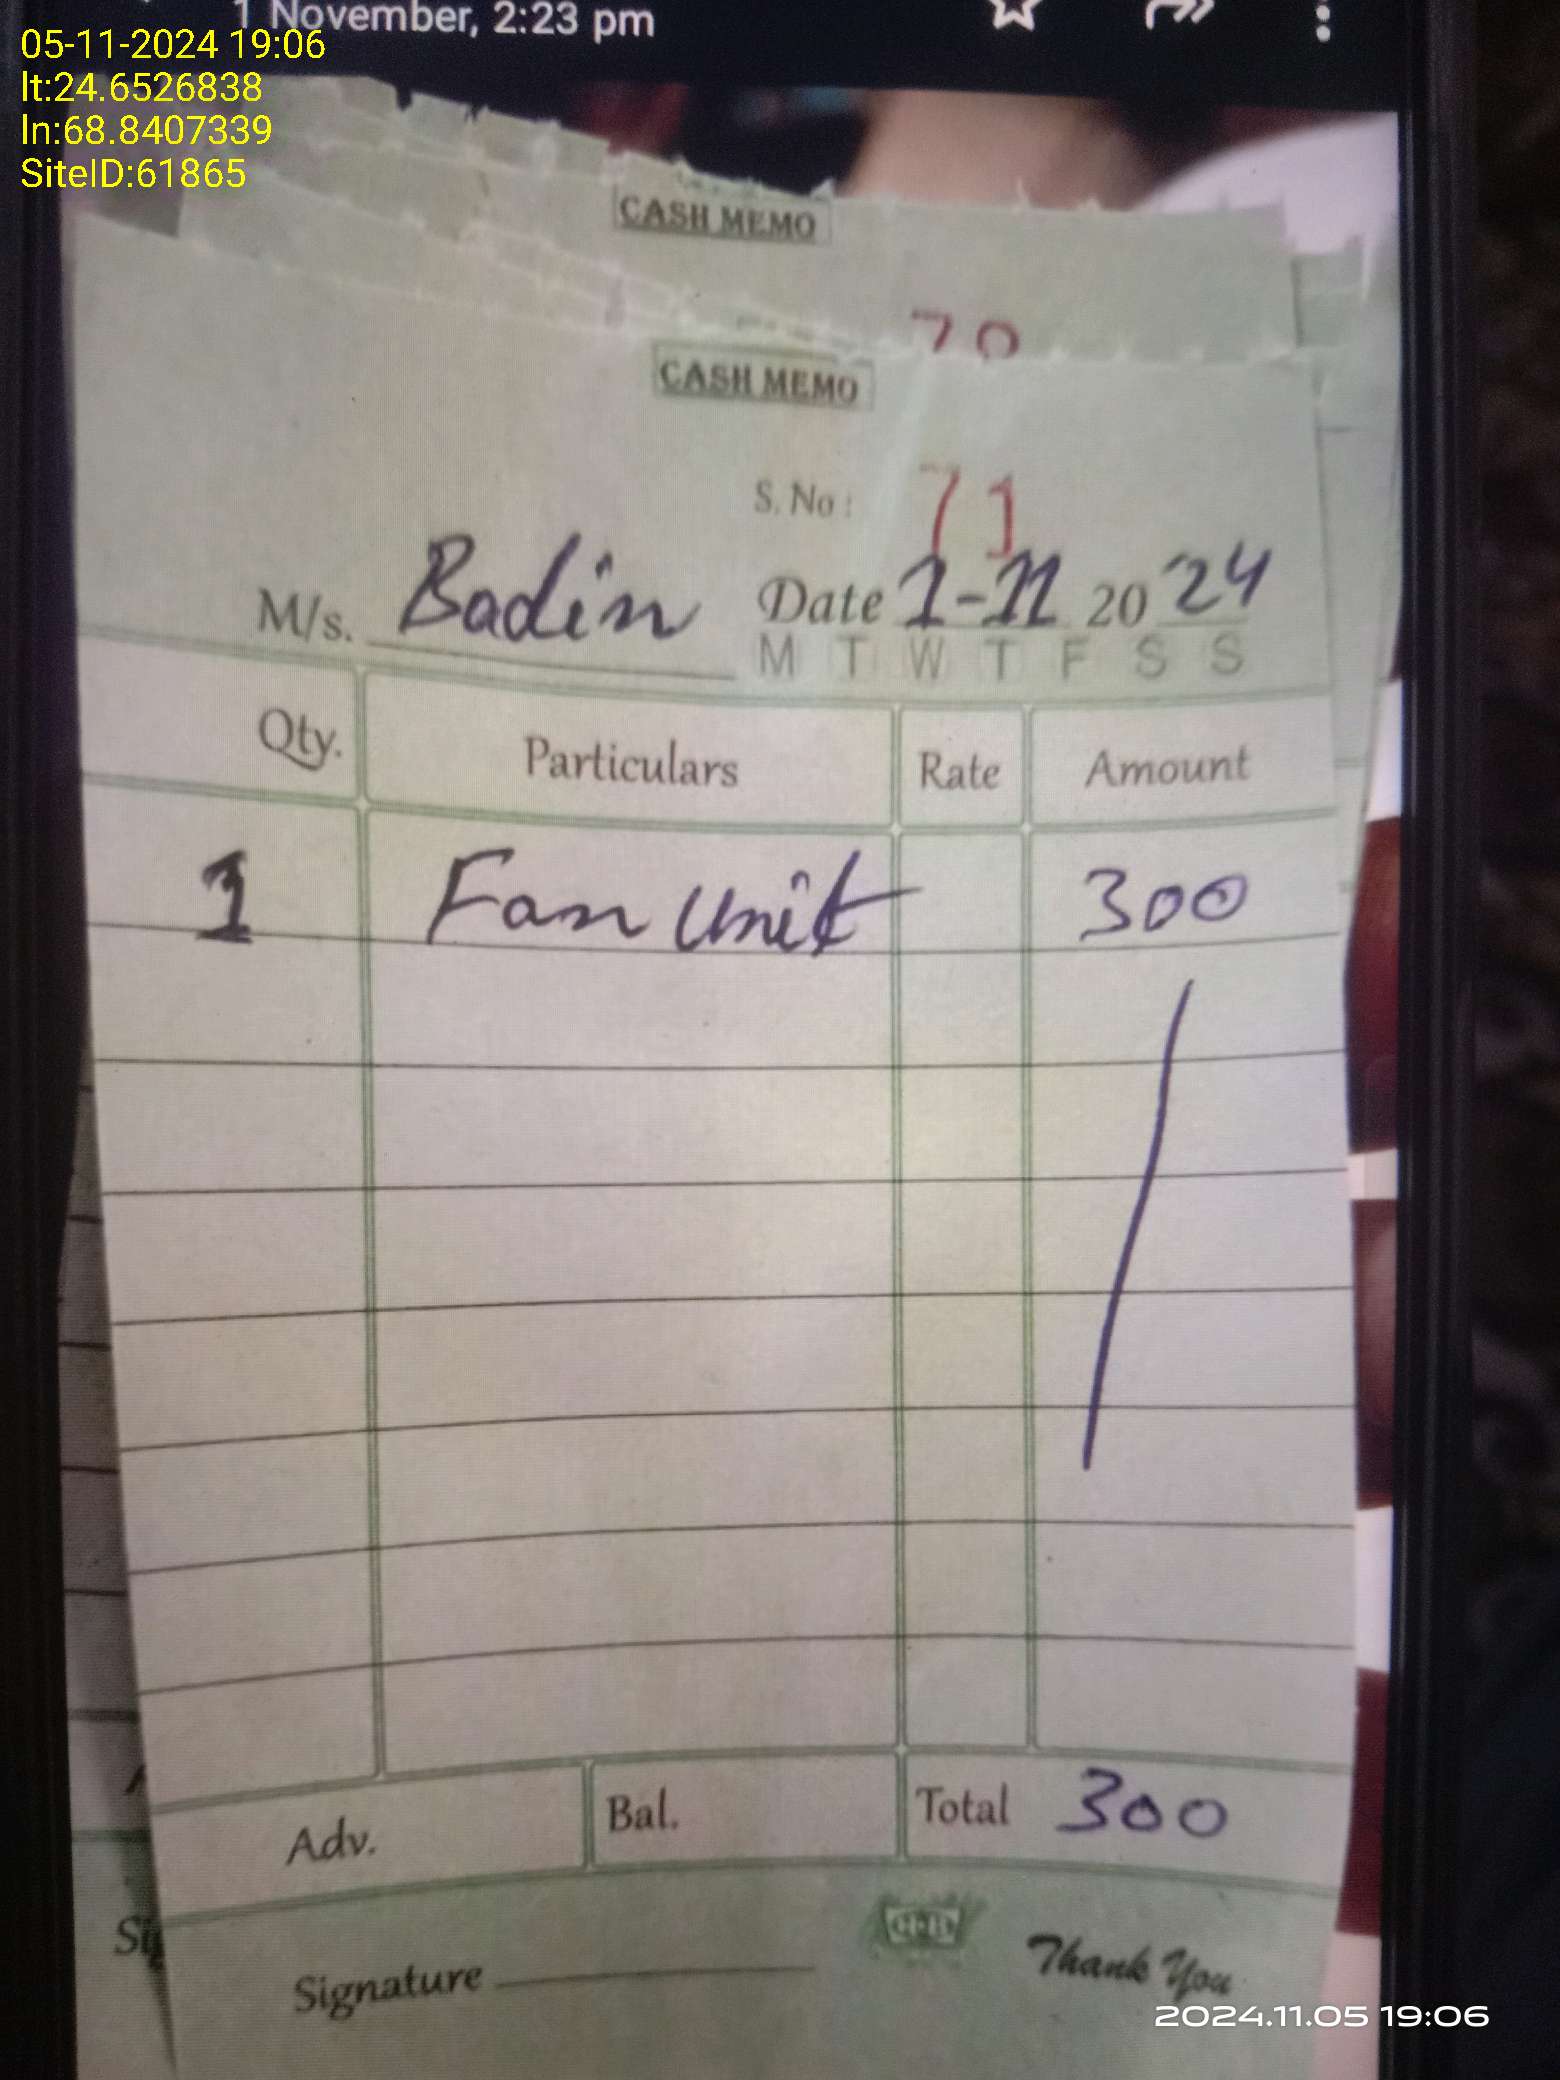 1 November, 2:23 pm
05-11-2024 19:06
lt:24.6526838
ln:68.8407339
SiteID:61865
CASH MEMO
70
CASH MEMO
S. No : 71
M/s. Badin Date 1-11 20 24
M T W T F S S
Qty. Particulars Rate Amount
1 Fan Unit 300
Adv. Bal. Total 300
Signature Thank You
2024.11.05 19:06